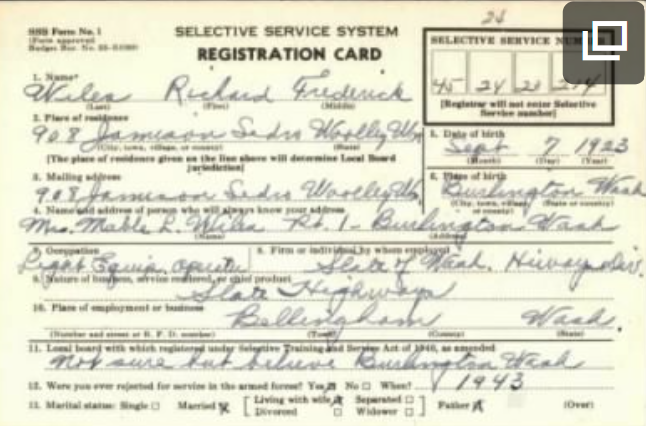 24
SSS Form No. 1
(Form approved
SELECTIVE SERVICE SYSTEM
REGISTRATION CARD
SELECTIVE SERVICE
45 24 23 214
[Registrar will not enter Selective
Service number]
1. Name*
Wiles Richard Frederick
(Last) (First) (Middle)
2. Place of residence
908 Jamieson Sedro Woolley Wn
(City, town, village, or county) (State)
[The place of residence given on the line above will determine Local Board
jurisdiction]
5. Date of birth
Sept 7 1923
(Month) (Day) (Year)
3. Mailing address
908 Jamieson Sedro Woolley Wn
6. Place of birth
Burlington Wash
(City, town, village, or county) (State or country)
4. Name and address of person who will always know your address
Mrs. Mable L. Wiles Rt. 1 - Burlington Wash
(Name) (Address)
7. Occupation
Light Equip. Operator
8. Firm or individual by whom employed
State of Wash. Hiways Div.
9. Nature of business, service rendered, or chief product
State Highways
10. Place of employment or business
Bellingham Wash.
(Number and street or R. F. D. number) (Town) (County) (State)
11. Local board with which registered under Selective Training and Service Act of 1940, as amended
Not sure but believe Burlington Wash
12. Were you ever rejected for service in the armed forces? Yes No When? 1943
13. Marital status: Single Married Living with wife Separated Divorced Widower Father (Over)